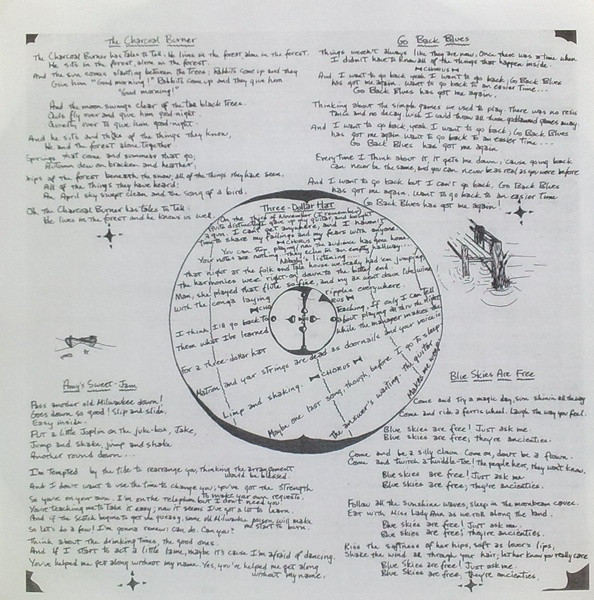 The Charcoal Burner
The Charcoal Burner has Tales to Tell. He lives in the forest, alone in the forest.
He sits in the forest, alone in the forest.
And the sun comes slanting between the trees; Rabbits come up and they
Give him "Good morning!" Rabbits come up and they give him
"Good morning!"
And the moon swings clear of the tall black trees.
Owls fly over and give him good night.
Quietly over to give him good night.
And he sits and thinks of the things they know,
He and the forest alone together.
Springs that come and summers that go,
Autumn dew on bracken and heather,
Drips of the forest beneath the snow; all of the things they have seen,
All of the things they have heard;
An April sky swept clean and the song of a bird.
Oh the Charcoal Burner has Tales to Tell.
He lives in the forest and he knows us well.
Go Back Blues
Things weren't always like they are now; Once there was a time when
I didn't have to know all of the things that happen inside.
CHORUS
And I want to go back, yeah I want to go back; Go Back Blues
has got me again. Want to go back to an easier time...
Go Back Blues has got me again.
Thinking about the simple games we used to play. There was no
and no decay. Wish I could throw all these goddamned games away
And I want to go back yeah I want to go back; Go Back Blues
has got me again want to go back to an easier time...
Go Back Blues has got me again
Everytime I think about it, it gets me down, cause going back
Can never be the same, and you can never be as real as you were before
And I want to go back but I can't go back, Go Back Blues
has got me again. Want to go back to an easier time
Go Back Blues has got me again!
Three-Dollar Hat
On the third of November (I remember)
Quite distinctly I gave up my guitar, and bought
a gun. I can't get anywhere, and I haven't
Time to share my failings and my fears with anyone.
CHORUS
You can stop playing now the audience has gone home.
Your votes are nothing - the echo in an empty hallway...
Nobody's listening...
That night at the folk and tale house we really had 'em jumping
The harmonies were right on down to the bitter end
Man, she played that flute so fine, and my ax went down like wine
with the conga laying ripples everywhere.
CHORUS
I think I'll go back to Teaching. If only I can Tell
Them what I've learned about playing all thru the night
For a three-dollar hat while the manager makes the
Matron and your strings are dead as doornails and your voice is
Limp and shaking. CHORUS
Maybe one last song, though, before I go to sleep
The answer's waiting. The guitar
Makes me weep
Amy's Sweet-Jam
Pass another old Milwaukee down!
Goes down so good! Slip and slide.
Easy inside.
Put a little Joplin on the juke-box, Jake,
Jump and shake, jump and shake
Another round down...
I'm Tempted by the tile to rearrange you, thinking the arrangement
would be blessed.
And I don't want to use the time to change you; you've got the strength
to make your own requests.
So you're on your own. I'm on the Telephone but I don't need you
You're teaching me to Take it easy; now it seems I've got a lot to learn.
And if the sketch begins to get the pukesy, some old Milwaukee poison will make
me start to burn.
So let's do a few! I'm gonna renew; can do. Can you?
Think about the drinking times, the good ones.
And if I start to act a little lame, maybe it's cause I'm afraid of dancing.
You've helped me get along without my name. Yes, you've helped me get along
without my name.
Blue Skies Are Free
Come and try a magic day, sun shinin all the way
Come and ride a ferris wheel. Laugh the way you feel.
Blue skies are free! Just ask me.
Blue skies are free; they're ancienties.
Come and be a silly clam. Come on, don't be a frown.
Come and twitch a twiddle-toe! The people here, they won't know.
Blue skies are free! Just ask me
Blue skies are free; they're ancienties.
Follow all the sunshine waves, sleep in the moonbeam caves.
Eat with Miss Lady Ann as we roll along the land.
Blue skies are free! Just ask me.
Blue skies are free! they're ancienties.
Kiss the softness of her lips, soft as lover's lips,
Shake the wind all through your hair; let her know you really care
Blue skies are free! Just ask me.
Blue skies are free, they're ancienties.